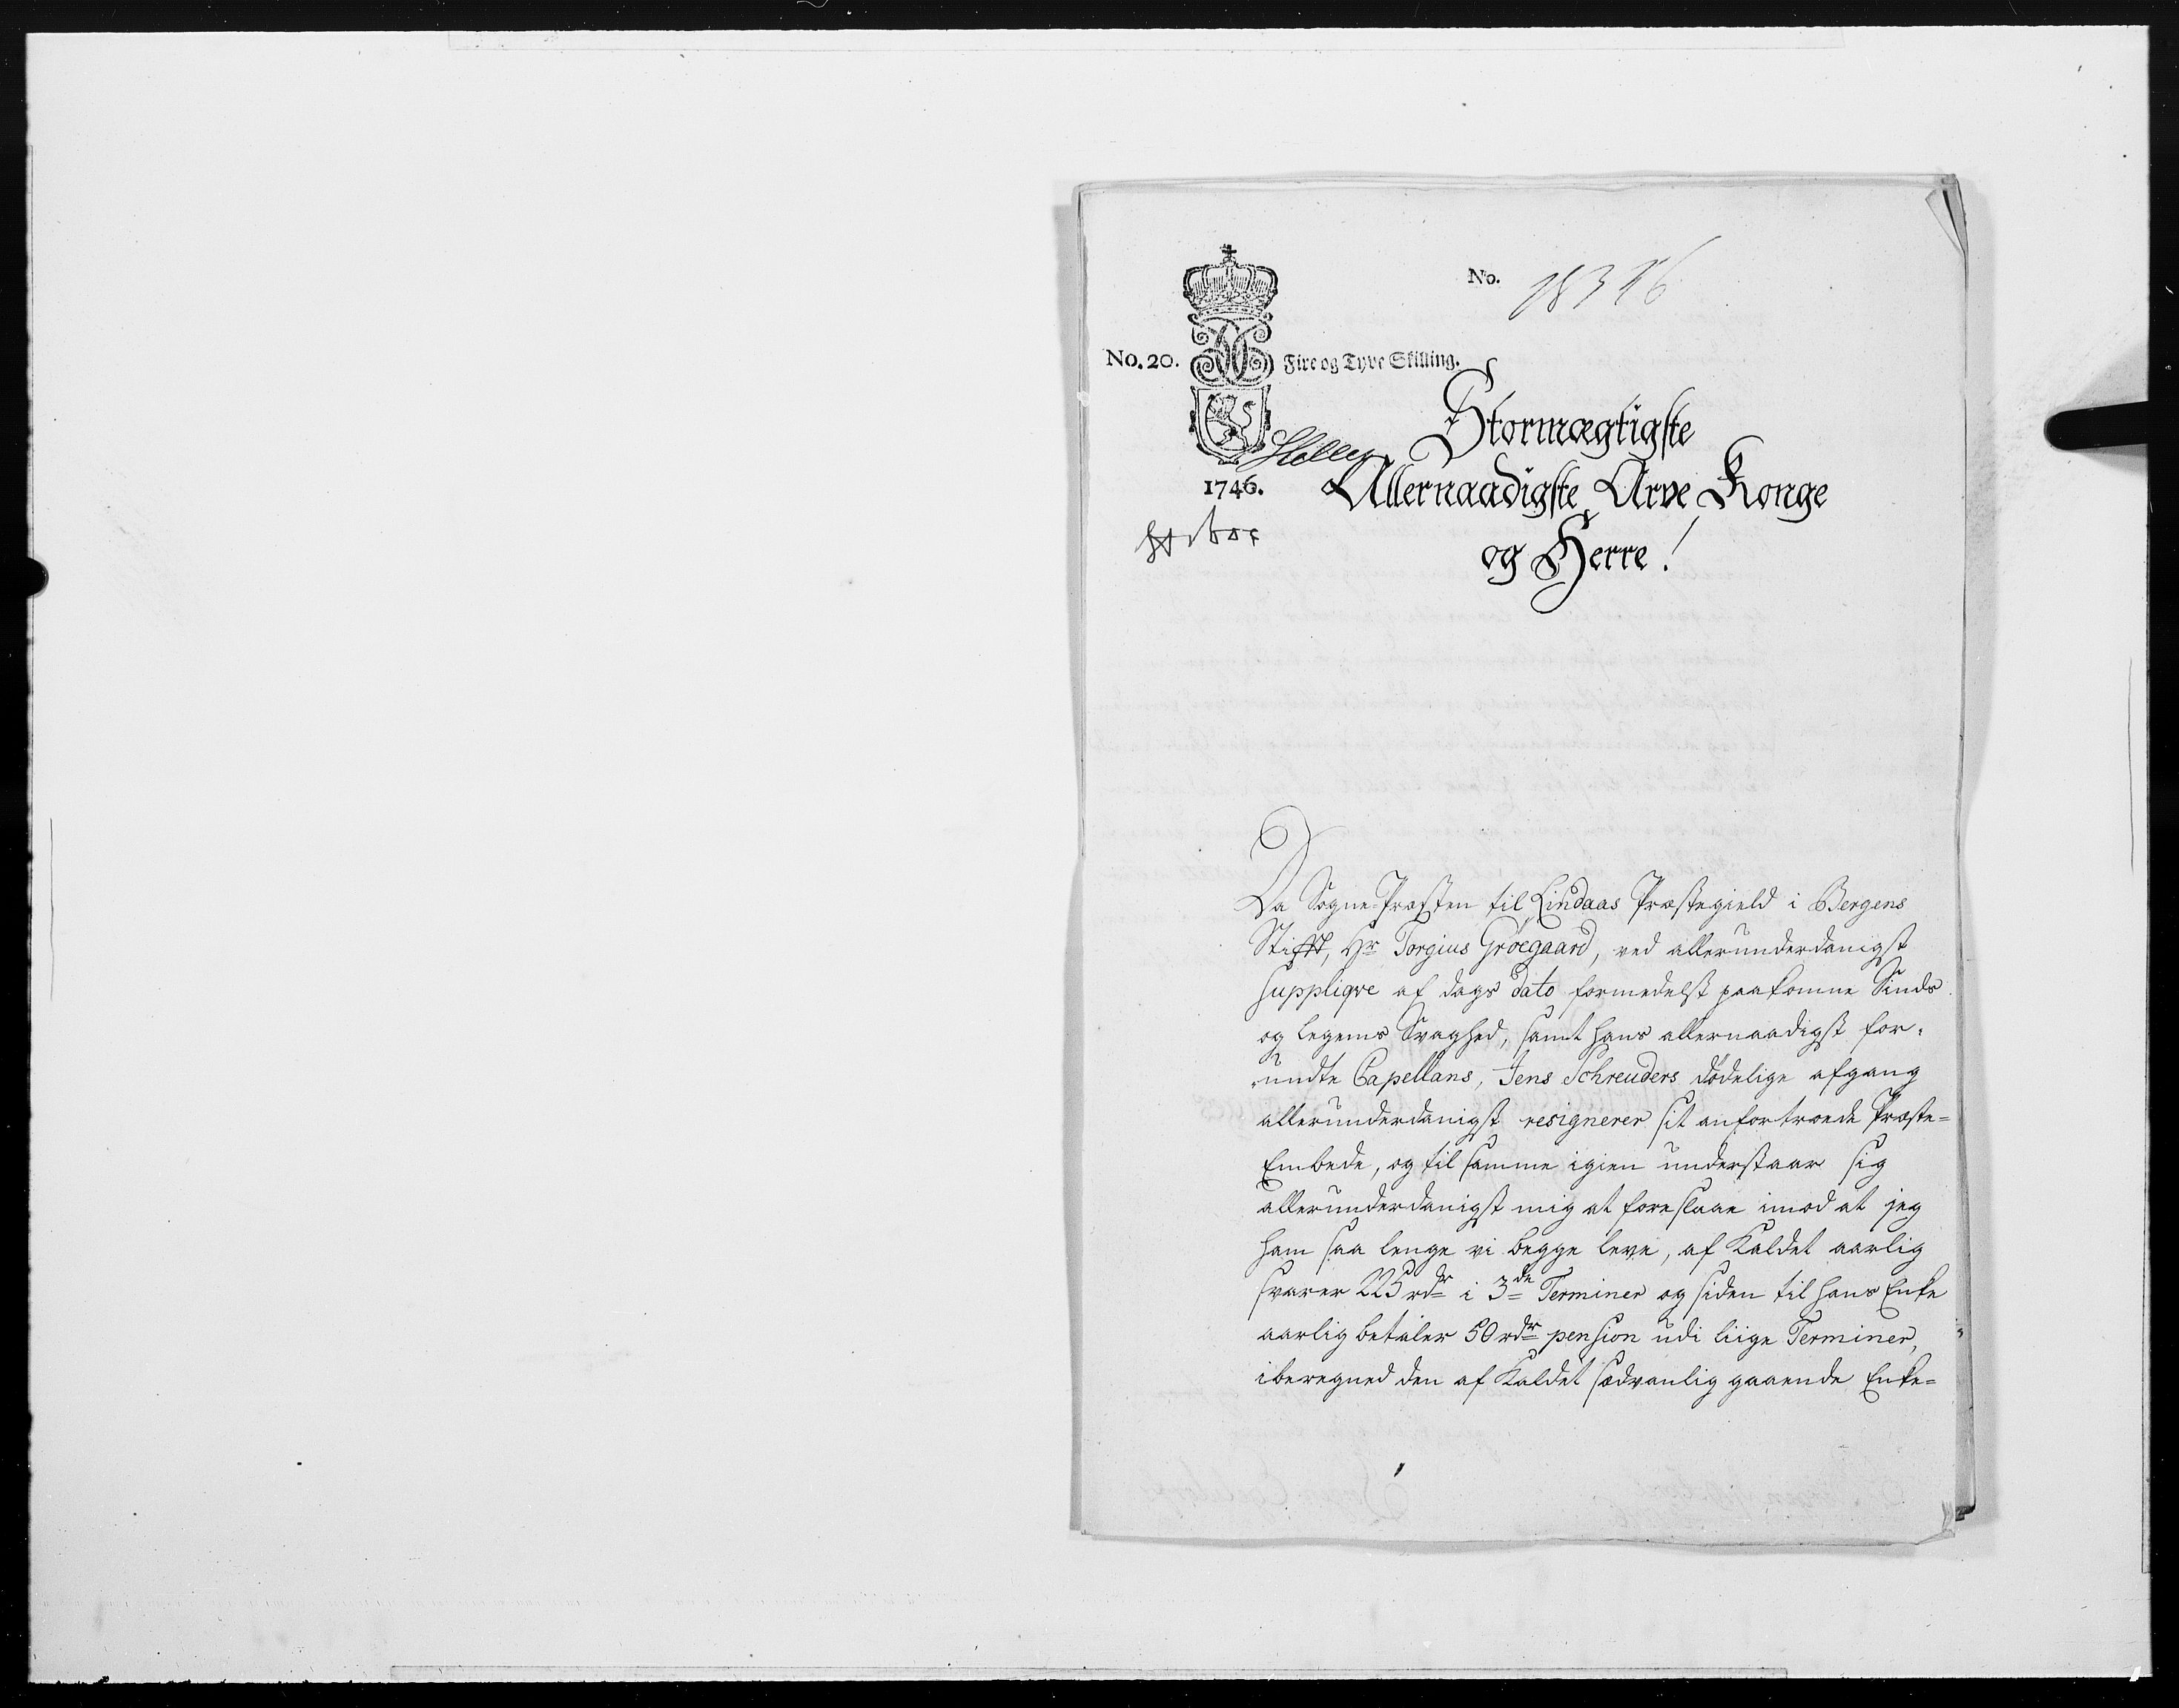 No. 18346
No. 20. Fire og Tyve Skilling.
Stormægtigste
1746. Allernaadigste Arve Konge
og Herre!
Da Sogne-Præsten til Lindaas Præstegield i Bergens
Stifft, Hr Torgius Grøegaard, ved allerunderdanigst
Suppliqve af dags dato formedelst paakomne Sinds
og Legems Svaghed, samt hans allernaadigst for-
undte Capellans, Jens Schreuders dødelige afgang
allerunderdanigst resignerer sit anfortroede Præste=
Embede, og til samme igien understaar sig
allerunderdanigst mig at foreslaae imod at jeg
ham saa lenge vi begge leve, af Kaldet aarlig
svarer 225 rdr i 3de Terminer og siden til hans Enke
aarlig betaler 50 rdr pension udi liige Terminer,
iberegned den af Kaldet sædvanlig gaaende Enke=